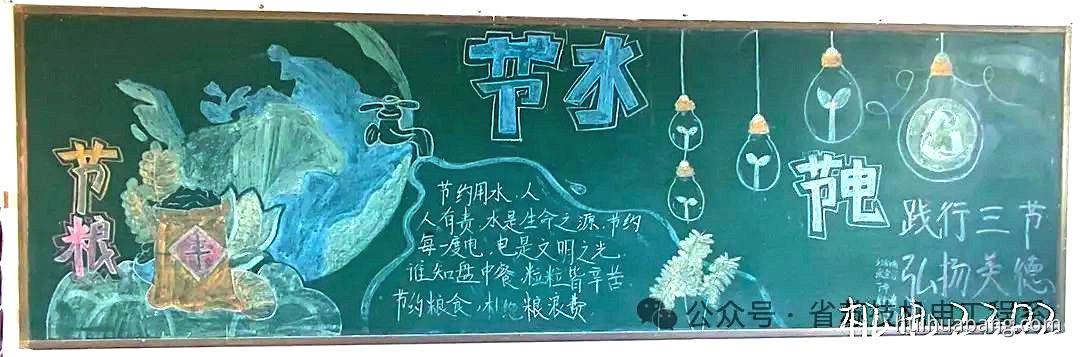 节水
节粮
丰
节约用水,人
人有责,水是生命之源.节约
每一度电,电是文明之光.
谁知盘中餐,粒粒皆辛苦.
节约粮食,粮浪费.
节电
践行三节
弘扬美德
公众号·省
机电2202
huabang.com